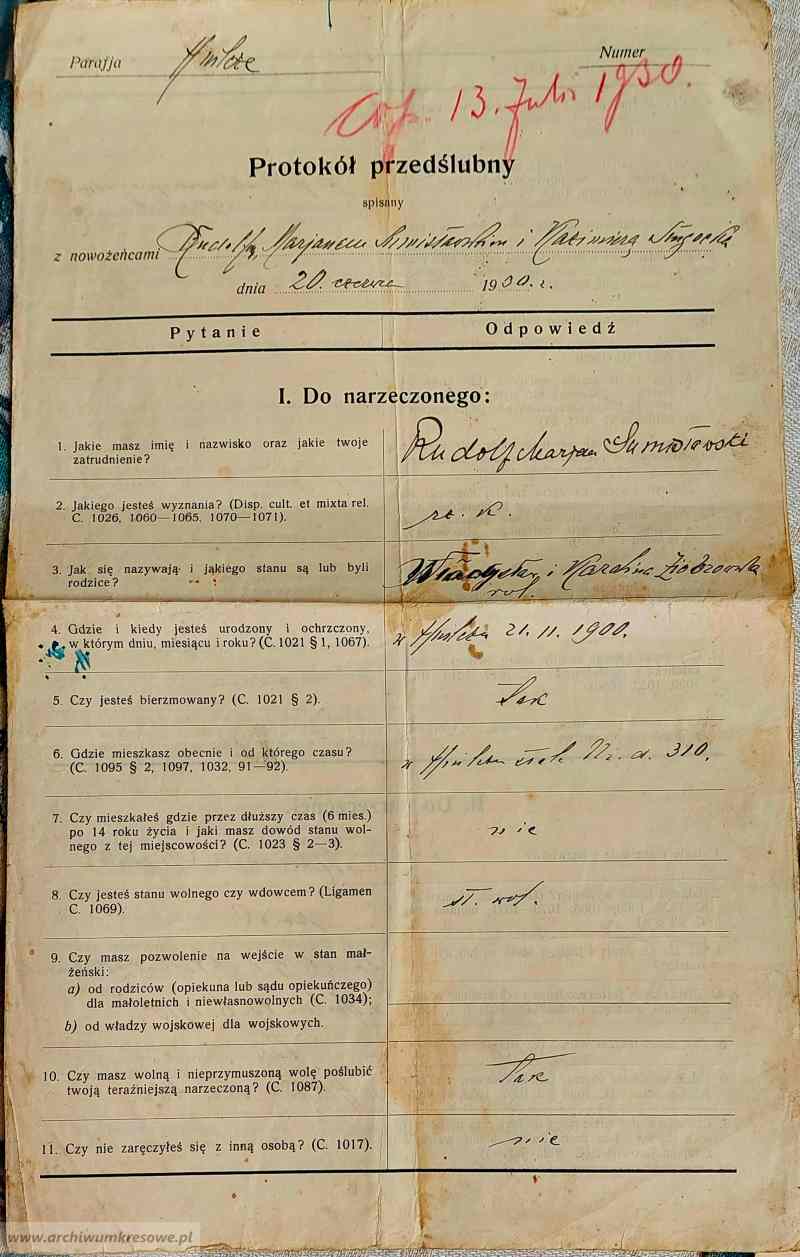 Parafja Hulcze
Numer
Cop. 13. Julii 1930.
Protokół przedślubny
spisany
z nowożeńcami Rudolfem Marjanem i Kazimierą
dnia 20. czerwca 1930. r.
Pytanie Odpowiedź
I. Do narzeczonego:
1. Jakie masz imię i nazwisko oraz jakie twoje
zatrudnienie?
Rudolf Marjan
2. Jakiego jesteś wyznania? (Disp. cult. et mixta rel.
C. 1026, 1060—1065, 1070—1071).
rz. k.
3. Jak się nazywają i jakiego stanu są lub byli
rodzice?
i Karolina Ziobrowska
rol.
4. Gdzie i kiedy jesteś urodzony i ochrzczony,
w którym dniu, miesiącu i roku? (C. 1021 § 1, 1067).
w 21. 11. 1900.
5. Czy jesteś bierzmowany? (C. 1021 § 2).
Tak
6. Gdzie mieszkasz obecnie i od którego czasu?
(C. 1095 § 2, 1097, 1032, 91—92).
w Nr. d. 310.
7. Czy mieszkałeś gdzie przez dłuższy czas (6 mies.)
po 14 roku życia i jaki masz dowód stanu wol-
nego z tej miejscowości? (C. 1023 § 2—3).
nie
8. Czy jesteś stanu wolnego czy wdowcem? (Ligamen
C. 1069).
st. wol.
9. Czy masz pozwolenie na wejście w stan mał-
żeński:
a) od rodziców (opiekuna lub sądu opiekuńczego)
dla małoletnich i niewłasnowolnych (C. 1034);
b) od władzy wojskowej dla wojskowych.
10. Czy masz wolną i nieprzymuszoną wolę poślubić
twoją teraźniejszą narzeczoną? (C. 1087).
Tak
11. Czy nie zaręczyłeś się z inną osobą? (C. 1017).
nie
www.archiwumkresowe.pl